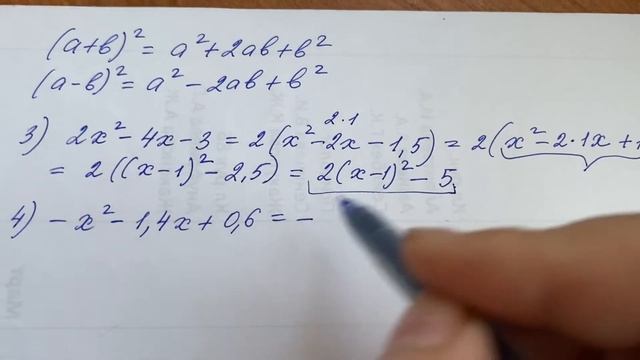 (a+b)² = a²+2ab+b²
(a-b)² = a²-2ab+b²
2·1
3) 2x²-4x-3 = 2(x²-2x-1,5) = 2(x²-2·1x+1
= 2((x-1)²-2,5) = 2(x-1)²-5
4) -x²-1,4x+0,6 = -